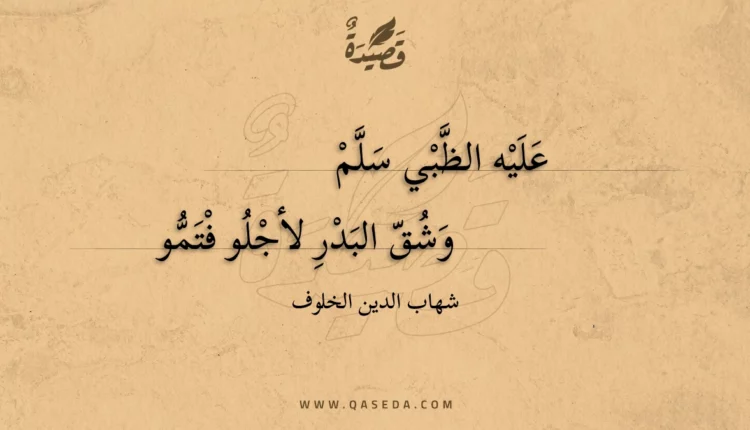 قَصِيْدَةٌ
عَلَيْه الظَّبْي سَلَّمْ
وَشُقّ البَدْرِ لأجْلُو فْتَمُّو
شهاب الدين الخلوف
WWW.QASEDA.COM